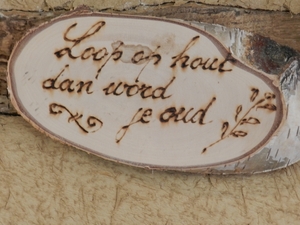 Loop op hout
dan word
je oud